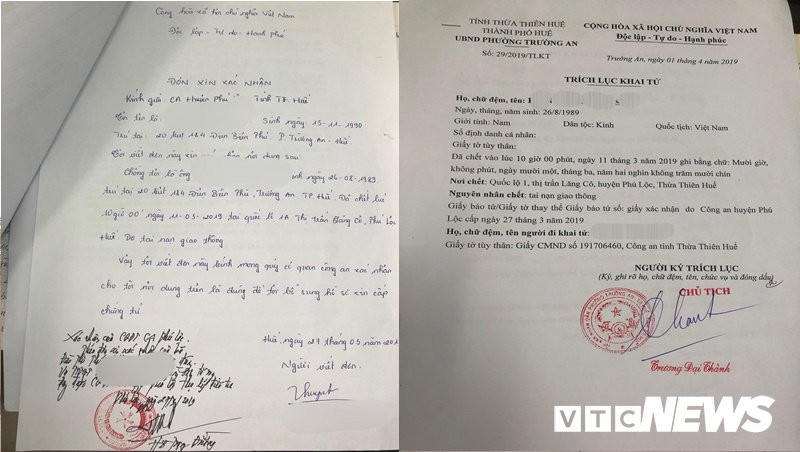 Cộng hòa xã hội chủ nghĩa Việt Nam
Độc lập - Tự do - Hạnh phúc
ĐƠN XIN XÁC NHẬN
Kính gửi CA Huyện Phú Tỉnh TT. Huế
Tôi tên là: Sinh ngày 15-11-1990
Trú tại 20 kiệt 184 Điện Biên Phủ P. Trường An - Huế.
Tôi viết đơn này xin nội dung sau
Chồng tôi là ông sinh ngày 26-08-1989
trú tại 20 kiệt 184 Điện Biên Phủ, Trường An. TP. Huế. Đã chết lúc
10 giờ 00 ngày 11-03-2019 tại quốc lộ 1A Thị Trấn Lăng Cô, Phú Lộc
Huế Do tai nạn giao thông
Vậy tôi viết đơn này kính mong quý cơ quan công an xác nhận
cho tôi nội dung trên là đúng để tôi bổ sung hồ sơ xin cấp
chứng tử
Huế, ngày 27 tháng 03 năm 201
Người viết đơn.
Xác nhận của
TỈNH THỪA THIÊN HUẾ
THÀNH PHỐ HUẾ
UBND PHƯỜNG TRƯỜNG AN
Số: 29/2019/TLKT
CỘNG HÒA XÃ HỘI CHỦ NGHĨA VIỆT NAM
Độc lập - Tự do - Hạnh phúc
Trường An, ngày 01 tháng 4 năm 2019
TRÍCH LỤC KHAI TỬ
Họ, chữ đệm, tên:
Ngày, tháng, năm sinh: 26/8/1989
Giới tính: Nam Dân tộc: Kinh Quốc tịch: Việt Nam
Số định danh cá nhân:
Giấy tờ tùy thân:
Đã chết vào lúc 10 giờ 00 phút, ngày 11 tháng 3 năm 2019 ghi bằng chữ: Mười giờ,
không phút, ngày mười một, tháng ba, năm hai nghìn không trăm mười chín
Nơi chết: Quốc lộ 1, thị trấn Lăng Cô, huyện Phú Lộc, Thừa Thiên Huế
Nguyên nhân chết: tai nạn giao thông
Giấy báo tử/Giấy tờ thay thế Giấy báo tử số: giấy xác nhận do Công an huyện Phú
Lộc cấp ngày 27 tháng 3 năm 2019
Họ, chữ đệm, tên người đi khai tử:
Giấy tờ tùy thân: Giấy CMND số 191706460, Công an tỉnh Thừa Thiên Huế
NGƯỜI KÝ TRÍCH LỤC
(Ký, ghi rõ họ, chữ đệm, tên, chức vụ và đóng dấu)
CHỦ TỊCH
Trương Đại Thành
VTC NEWS